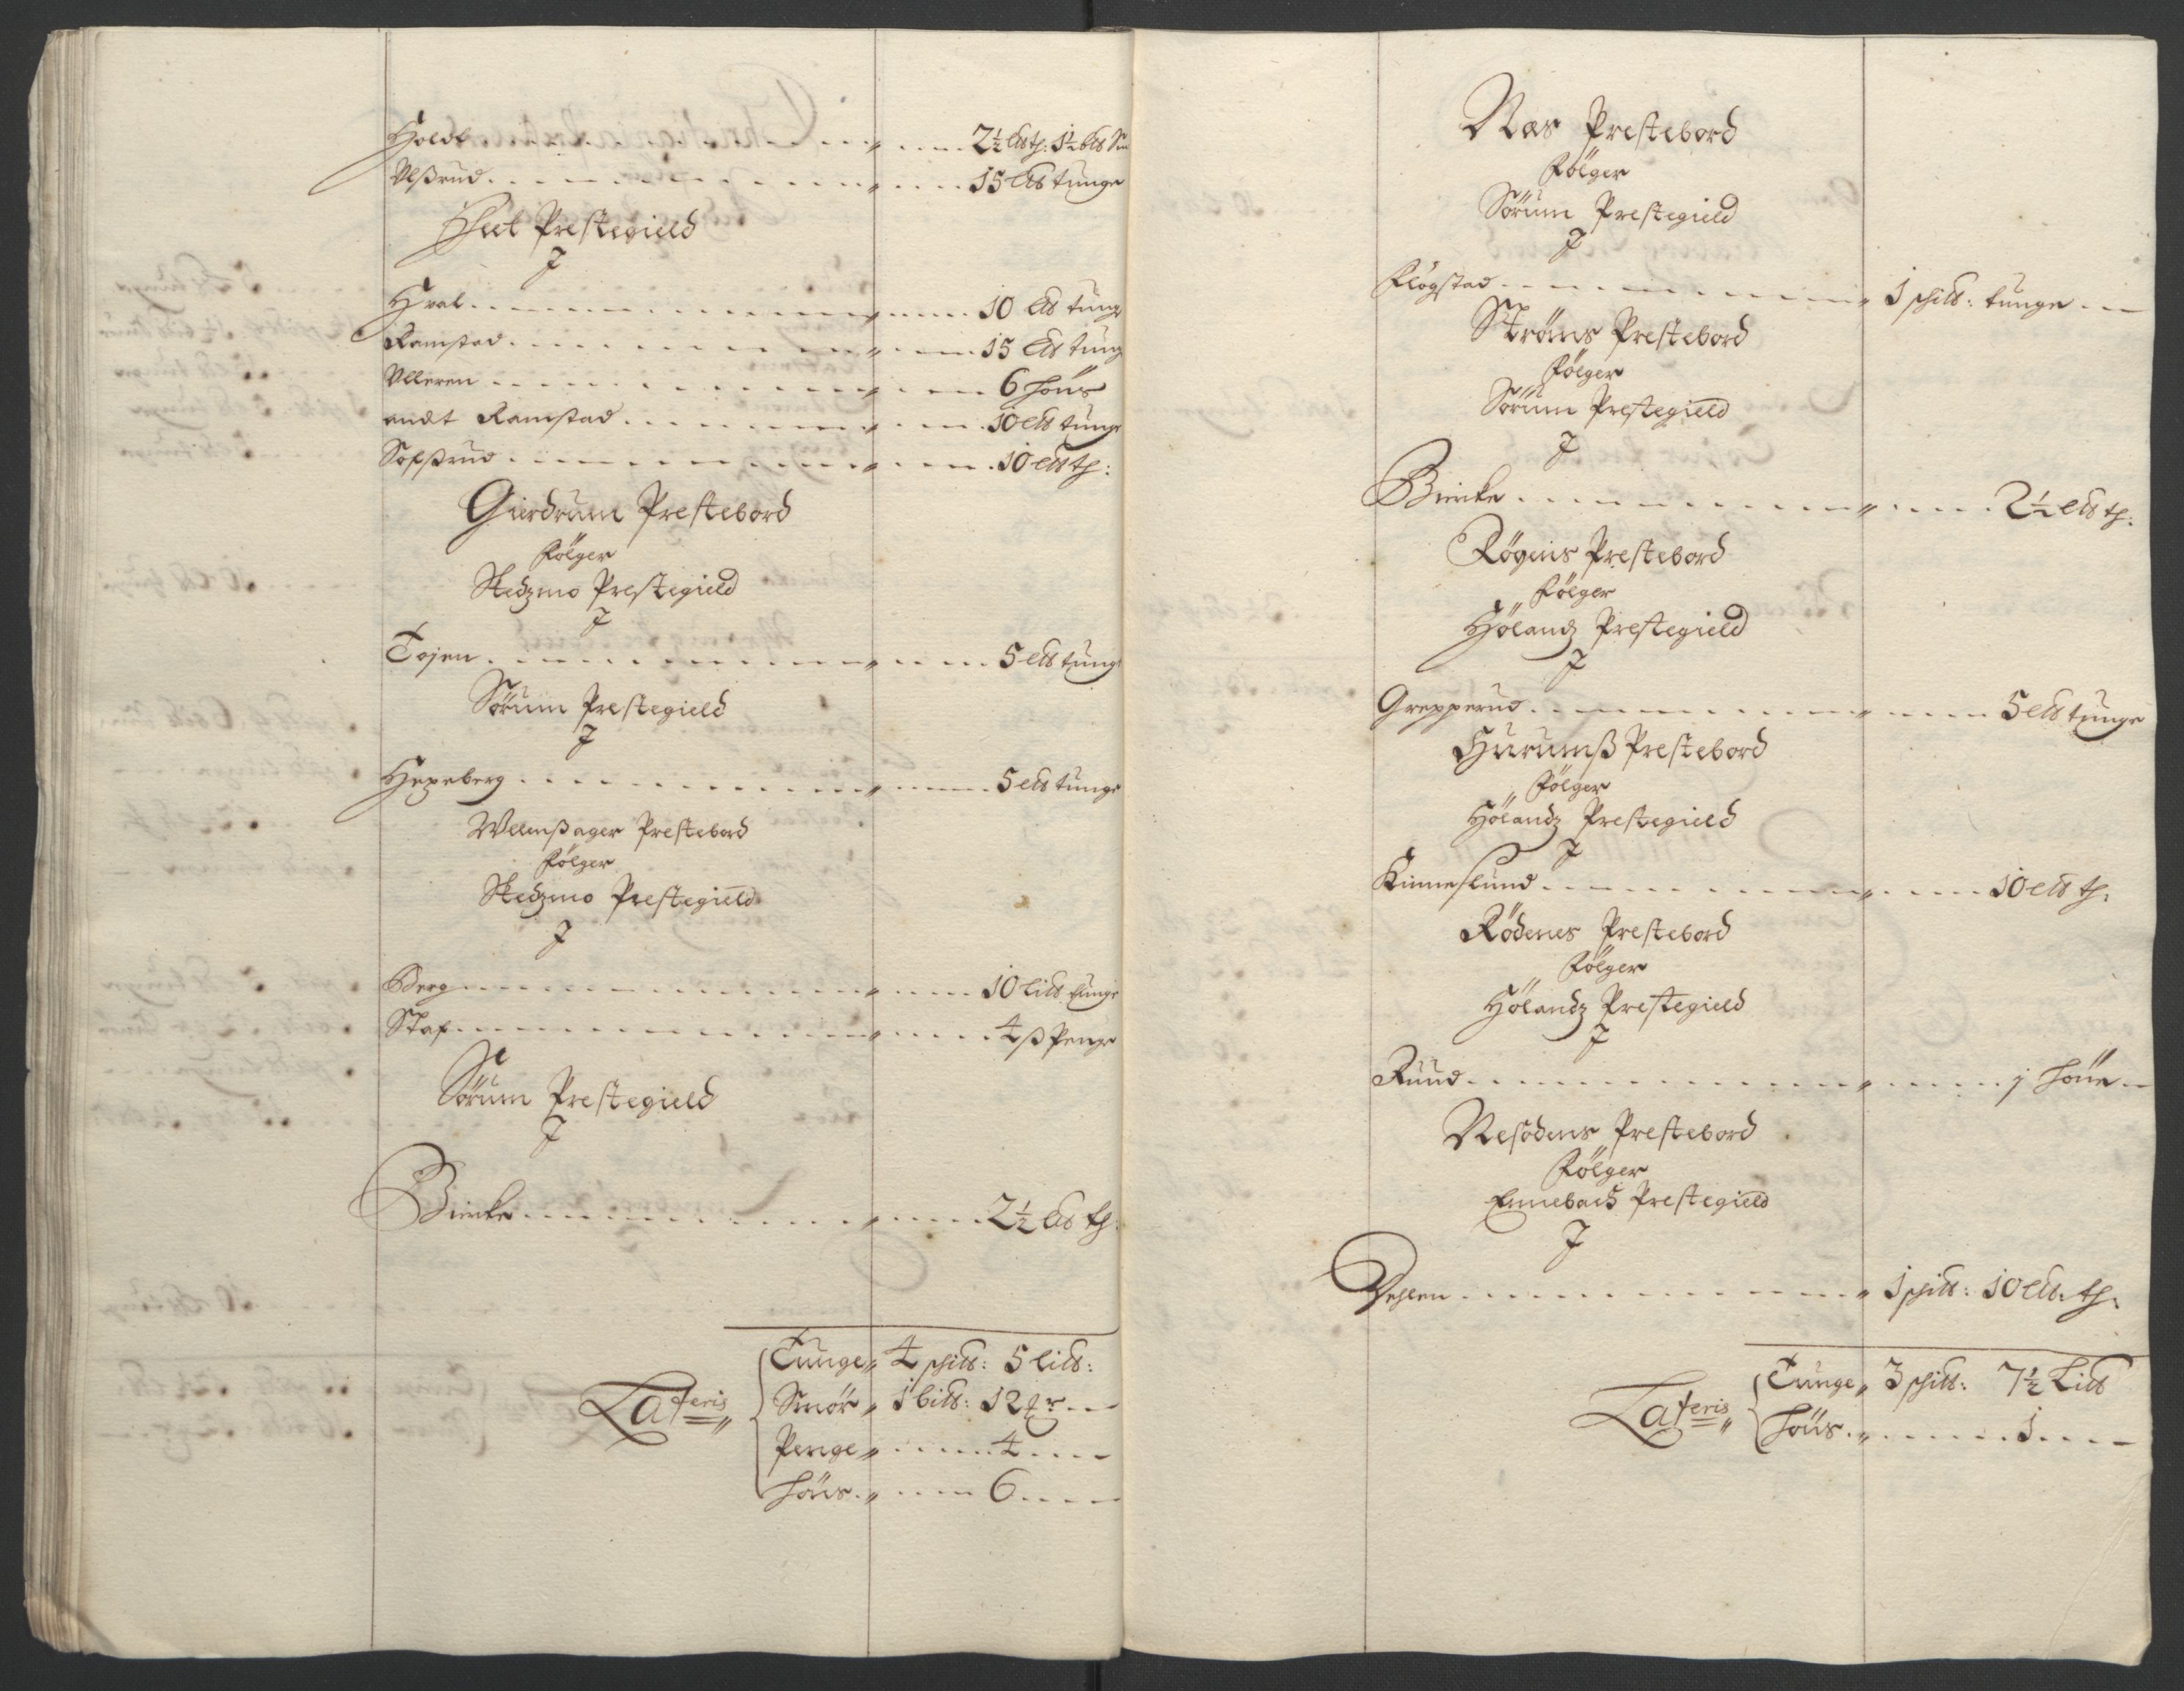 Holdt . . . . " . . . 2½ Lis th: 1½ bis Sm
Ulßrud . . . . " . . . 15 Lis tunge
Feet Prestegield
J
Hval . . . . " . . . 10 Lis tunge
Ramstad . . . . " . . . 15 Lis tung
Ulleren . . . . " . . . 6 höns
andt Ramstad . . . . " . . . 10 Lis tunge
Sofßrud . . . . " . . . 10 Lis th:
Gierdrum Prestebord
Fölger
Skedzmo Prestegield
J
Tojen . . . . " . . . 5 Lis tunge
Sörum Prestegield
J
Hexeberg . . . . " . . . 5 Lis tunge
Wllenßager Prestebord
Fölger
Skedzmo Prestegield
J
Berg . . . . " . . . 10 Lis tunge
Staf . . . . " . . . 4 ß Penge
Sörum Prestegield
J
Bierke . . . . " . . . 2½ Lis th:
Lateris "
Tunge " 4 schis: 5 Lis:
Smör " 1 bis: 12 mr
Penge " . . . 4 . . .
höns . " . . . 6 . . .
Næs Prestebord
Fölger
Sörum Prestegield
J
Flögstad . . . . " 1 schis: tunge
Ströms Prestebord
Fölger
Sörum Prestegield
J
Bierke . . . . " . . . 2½ Lis th:
Röyens Prestebord
Fölger
Hölandz Prestegield
J
Grepperud . . . . " . . . 5 Lis tunge
Hurumß Prestebord
Fölger
Hölandz Prestegield
J
Kinneslund . . . . " . . . 10 Lis th:
Rödenes Prestebord
Fölger
Hölandz Prestegield
J
Ruud . . . . " . . . 1 höne
Nesodens Prestebord
Fölger
Ennebach Prestegield
J
Vehlen . . . . " 1 schis: 10 Lis: th:
Lateris "
Tunge " 3 schis: 7½ Lis
höns . " . . . 1 . . .